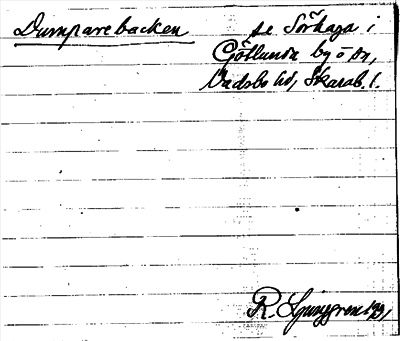 Dumparebacken se Sörhaga i
Götlunda by o. sn,
Vadsbo hd, Skarab. l.
R. Ljunggren